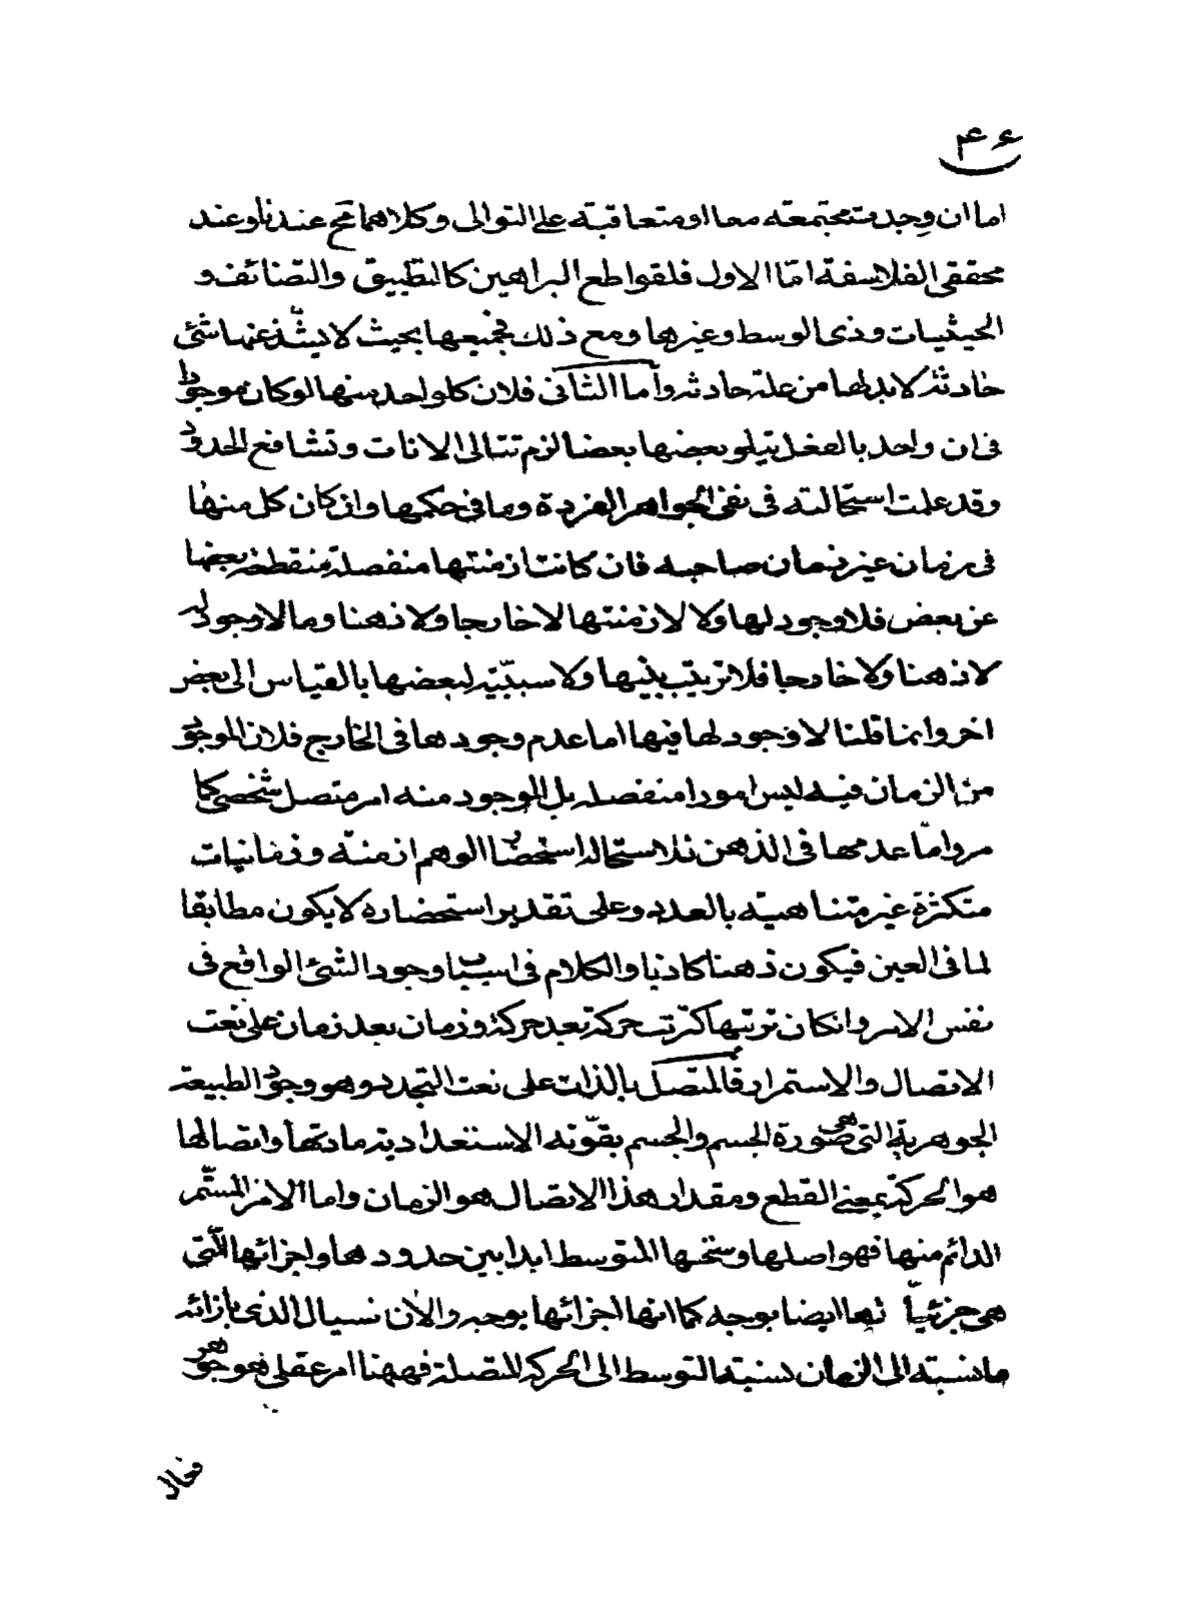 ۴۶
اما ان وجدت مجتمعة معا او متعاقبة على التوالى وكلاهما مح عندنا وعند
محققى الفلاسفة امّا الاول فلقواطع البراهين كالتطبيق والتضائف و
الحيثيات وذى الوسط وغيرها ومع ذلك فجميعها بحيث لا يشّذ عنها شئ
حادثة لابد لها من علة حادثة وأما الثانى فلان كلواحد منها لو كان موجودا
فى ان واحد بالفعل يتلو بعضها بعضا لزم تتالى الانات وتشافع الحدود
وقد علمت استحالته فى نفى الجواهر الفردة وما فى حكمها وان كان كل منها
فى زمان غير زمان صاحبه فان كانت ازمنتها منفصلة منقطعة بعضها
عن بعض فلا وجود لها ولا لازمنتها لا خارجا ولا ذهنا وما لا وجود له
لا ذهنا ولا خارجا فلا ترتيب بينها ولا سببيّة لبعضها بالقياس الى بعض
اخر وانما قلنا لا وجود لها فيها اما عدم وجودها فى الخارج فلان الموجود
من الزمان فيه ليس امورا منفصلة بل الموجود منه امر متصل شخصى كما
مر وامّا عدمها فى الذهن فلاستحالة استحضار الوهم ازمنة وزمانيات
متكثرة غير متناهية بالعدد وعلى تقدير استحضاره لا يكون مطابقا
لما فى العين فيكون ذهنا كاذبا والكلام فى اسباب وجود الشئ الواقع فى
نفس الامر وانكان ترتبها كترتب حركة بعد حركة وزمان بعد زمان على نعت
الاتصال والاستمرار فالمتصل بالذات على نعت التجدد وهو وجود الطبيعة
الجوهرية التى هى صورة الجسم والجسم بقوّته الاستعدادية مادتها واتصالها
هو الحركة بمعنى القطع ومقدار هذا الاتصال هو الزمان واما الامر المستّمر
الدائم منها فهو اصلها وسنخها المتوسط ابدا بين حدودها واجزائها اللّتى
هى جزئيّا تها ايضا بوجه كما انها اجزائها بوجه والان نسيال الذى بازائه
ما نسبته الى الزمان نسبة التوسط الى الحركة المتصلة فههنا امر عقلى هو جوهر
فعال